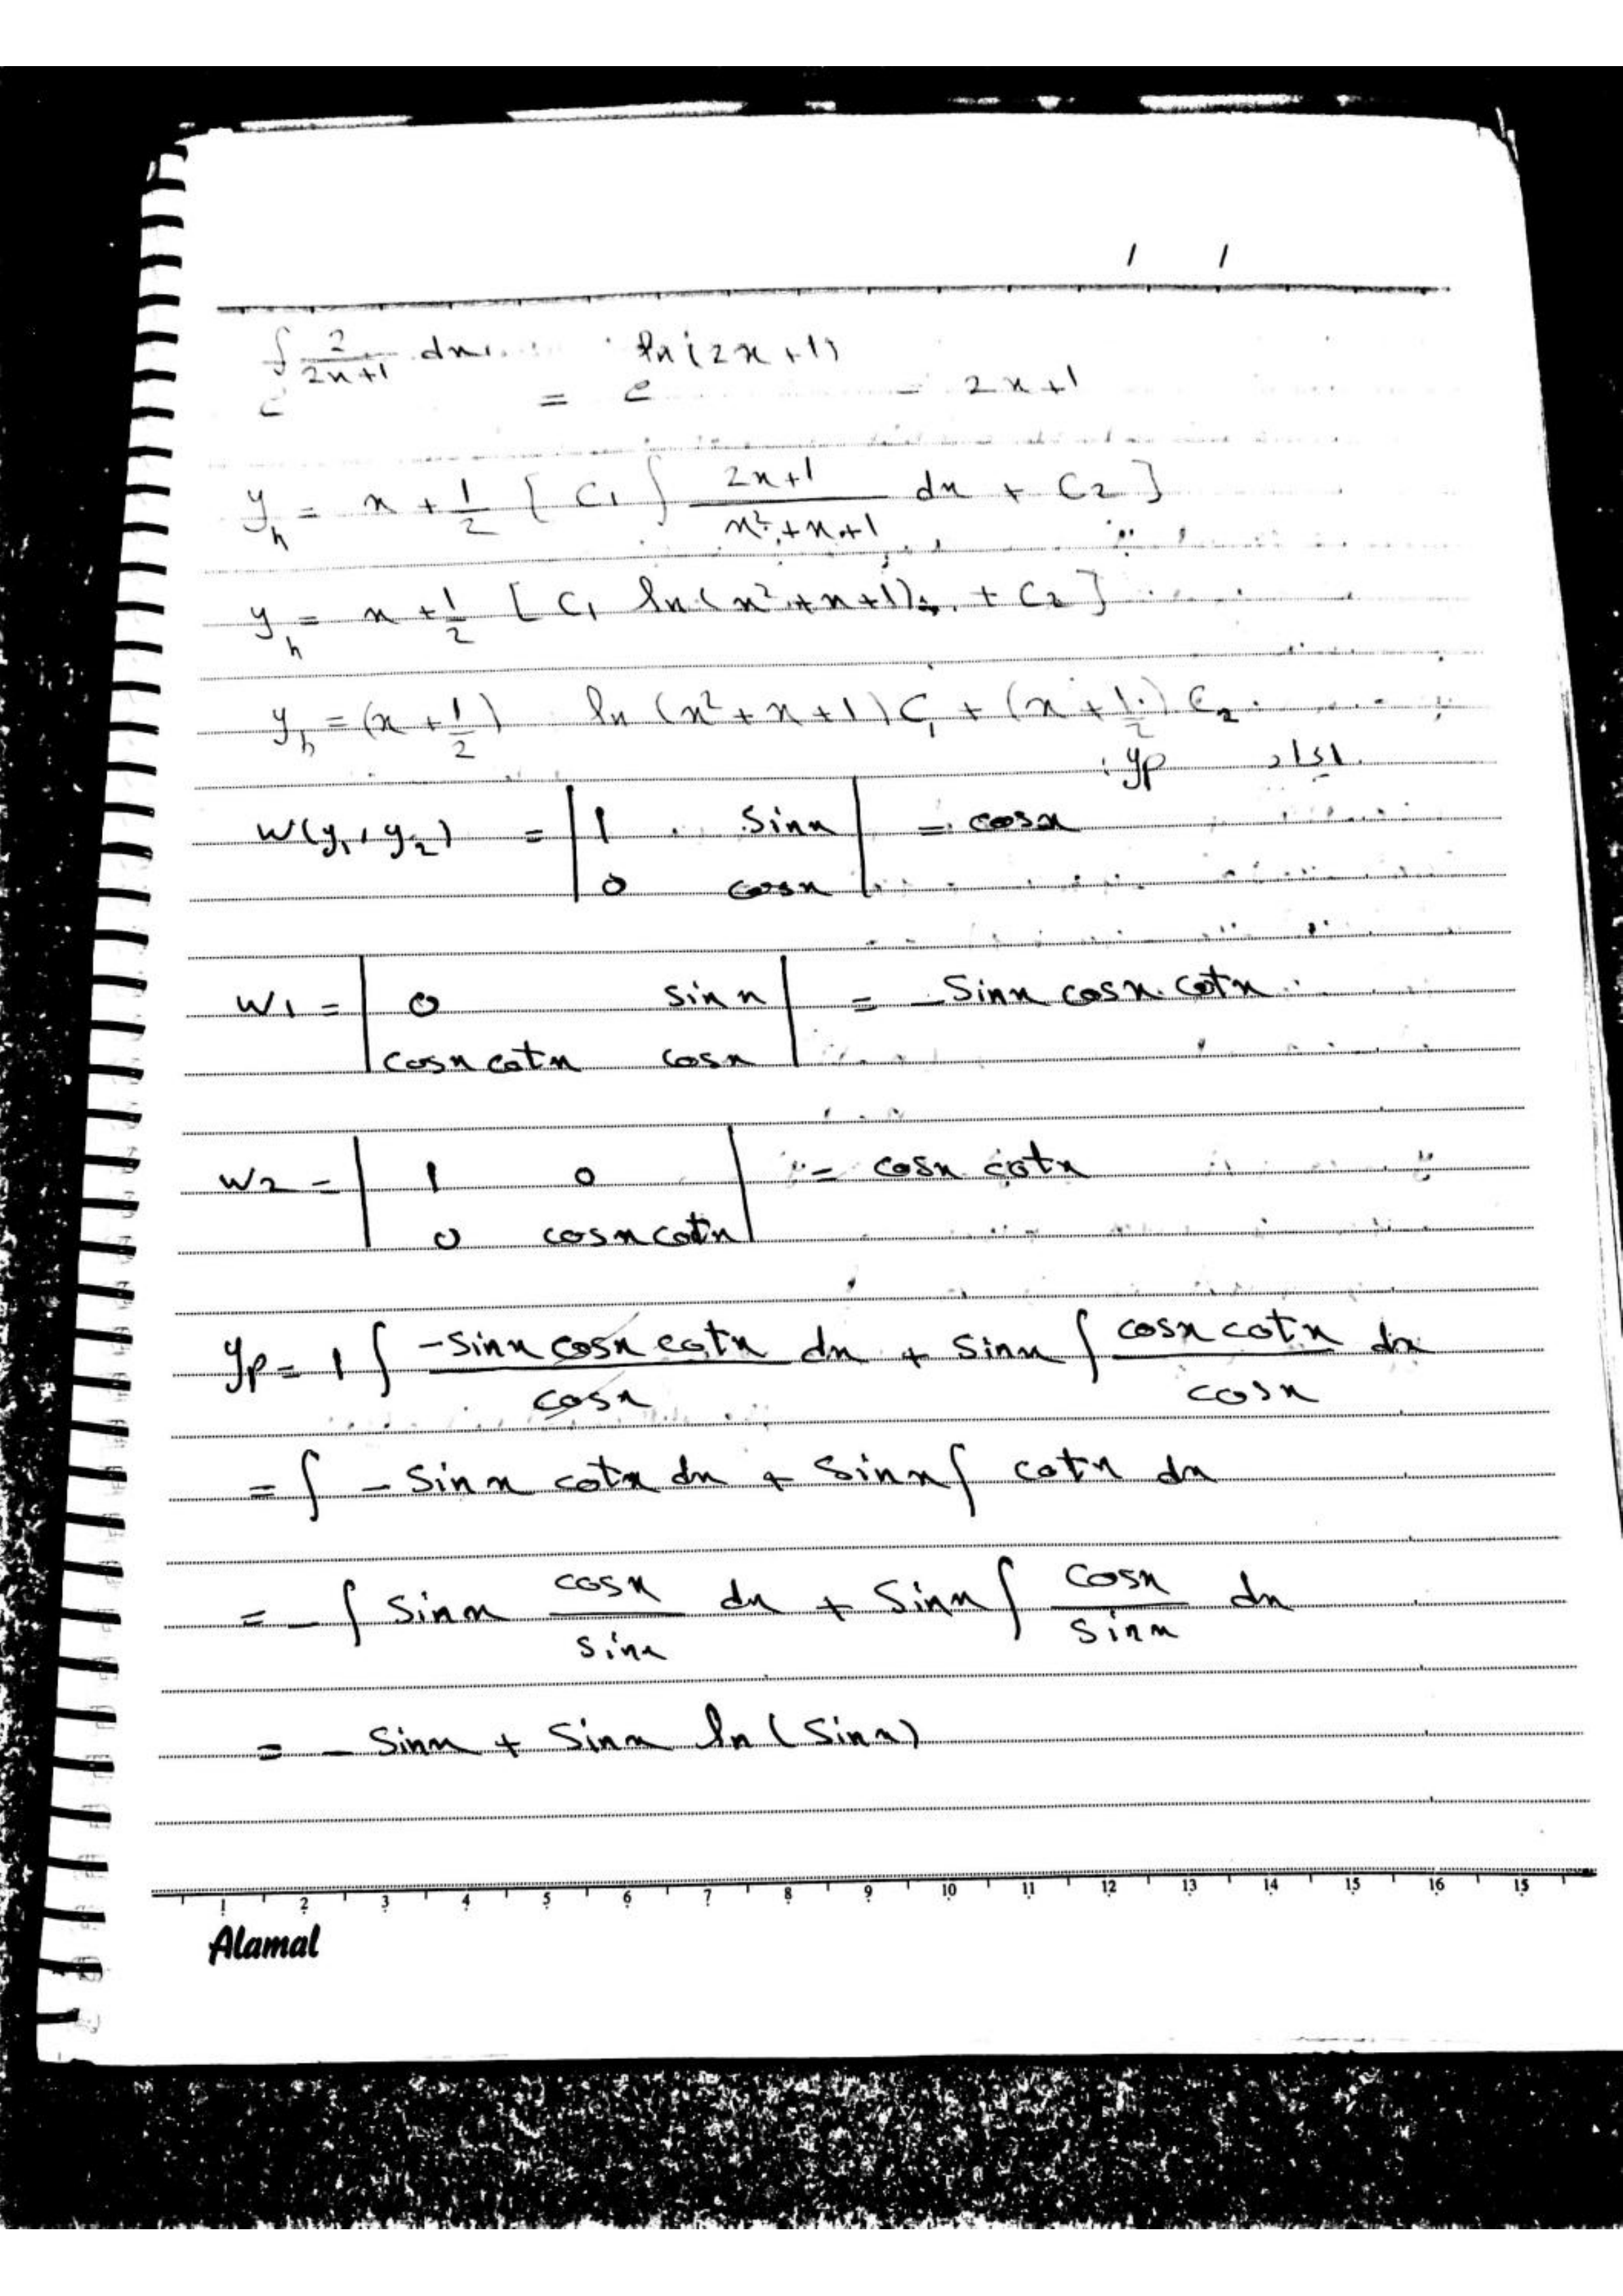 / /
e^∫ 2/(2x+1) dx = e^ln(2x+1) = 2x+1
y_h = x + 1/2 [ C1 ∫ (2x+1)/(x²+x+1) dx + C2 ]
y_h = x + 1/2 [ C1 ln(x²+x+1) + C2 ]
y_h = (x + 1/2) ln (x²+x+1) C1 + (x + 1/2) C2
yp
W(y1, y2) = | 1 sinx | = cosx
| 0 cosx |
W1 = | 0 sinx | = -sinx cosx cotx
| cosx cotx cosx |
W2 = | 1 0 | = cosx cotx
| 0 cosx cotx |
yp = 1 ∫ (-sinx cosx cotx)/cosx dx + sinx ∫ (cosx cotx)/cosx dx
= ∫ - sinx cotx dx + sinx ∫ cotx dx
= - ∫ sinx cosx/sinx dx + sinx ∫ cosx/sinx dx
= - sinx + sinx ln (sinx)
1 2 3 4 5 6 7 8 9 10 11 12 13 14 15 16 15
Alamal